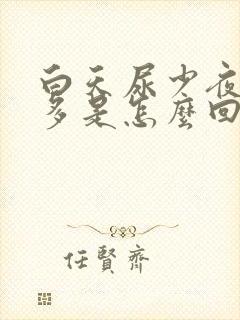 白天尿少夜
多是怎麼回
任賢齊